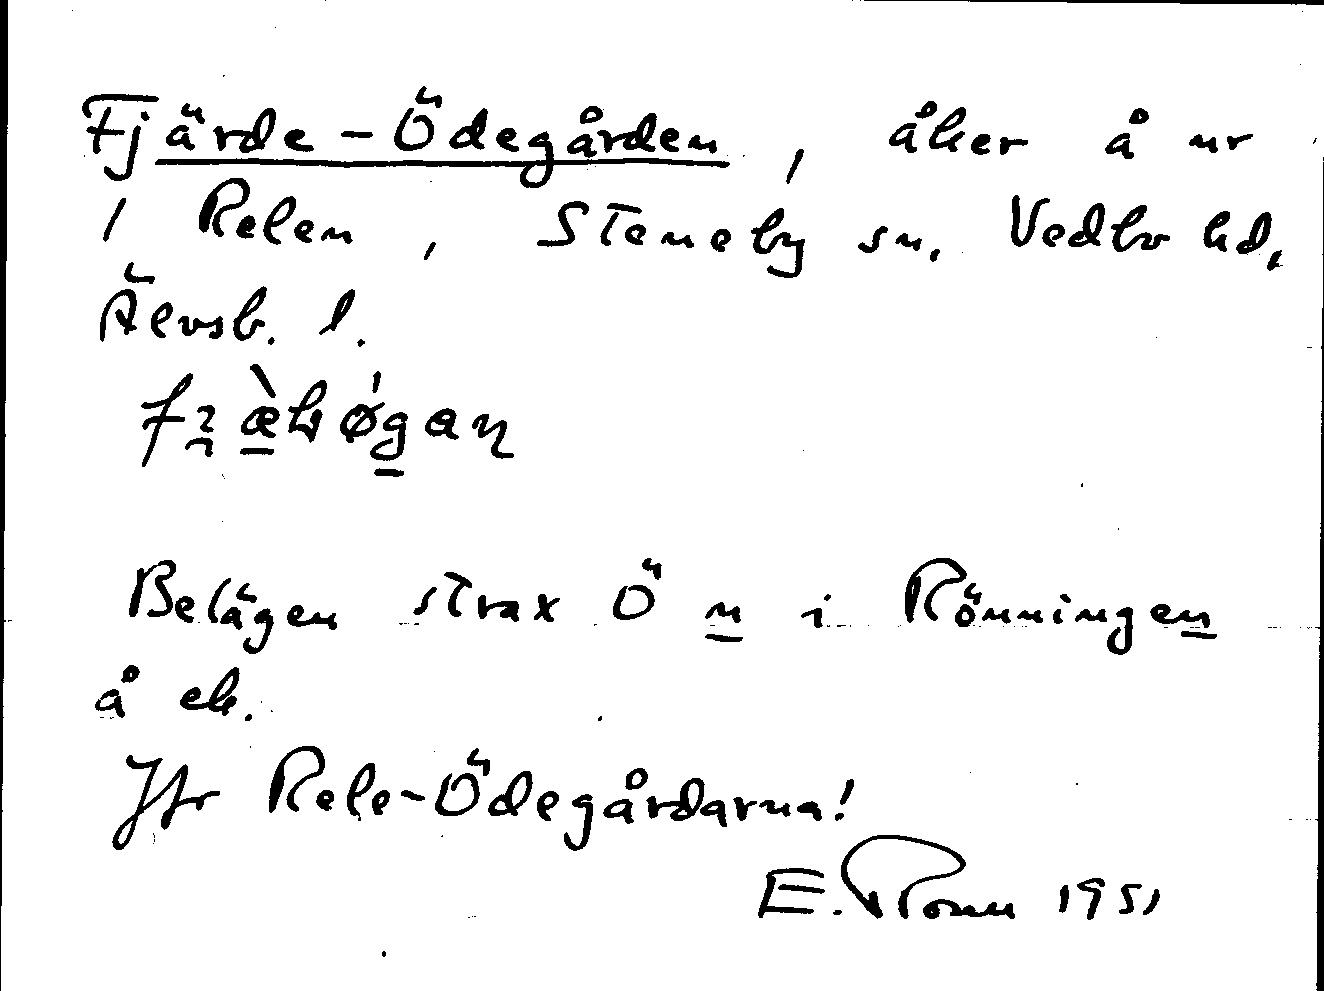 Fjärde-Ödegården, åker å nr
1 Relen, Steneby sn, Vedbo hd,
Älvsb. l.
Belägen strax Ö n i Rönningen
å ek.
Jfr Rele-Ödegårdarna!
E. 1951